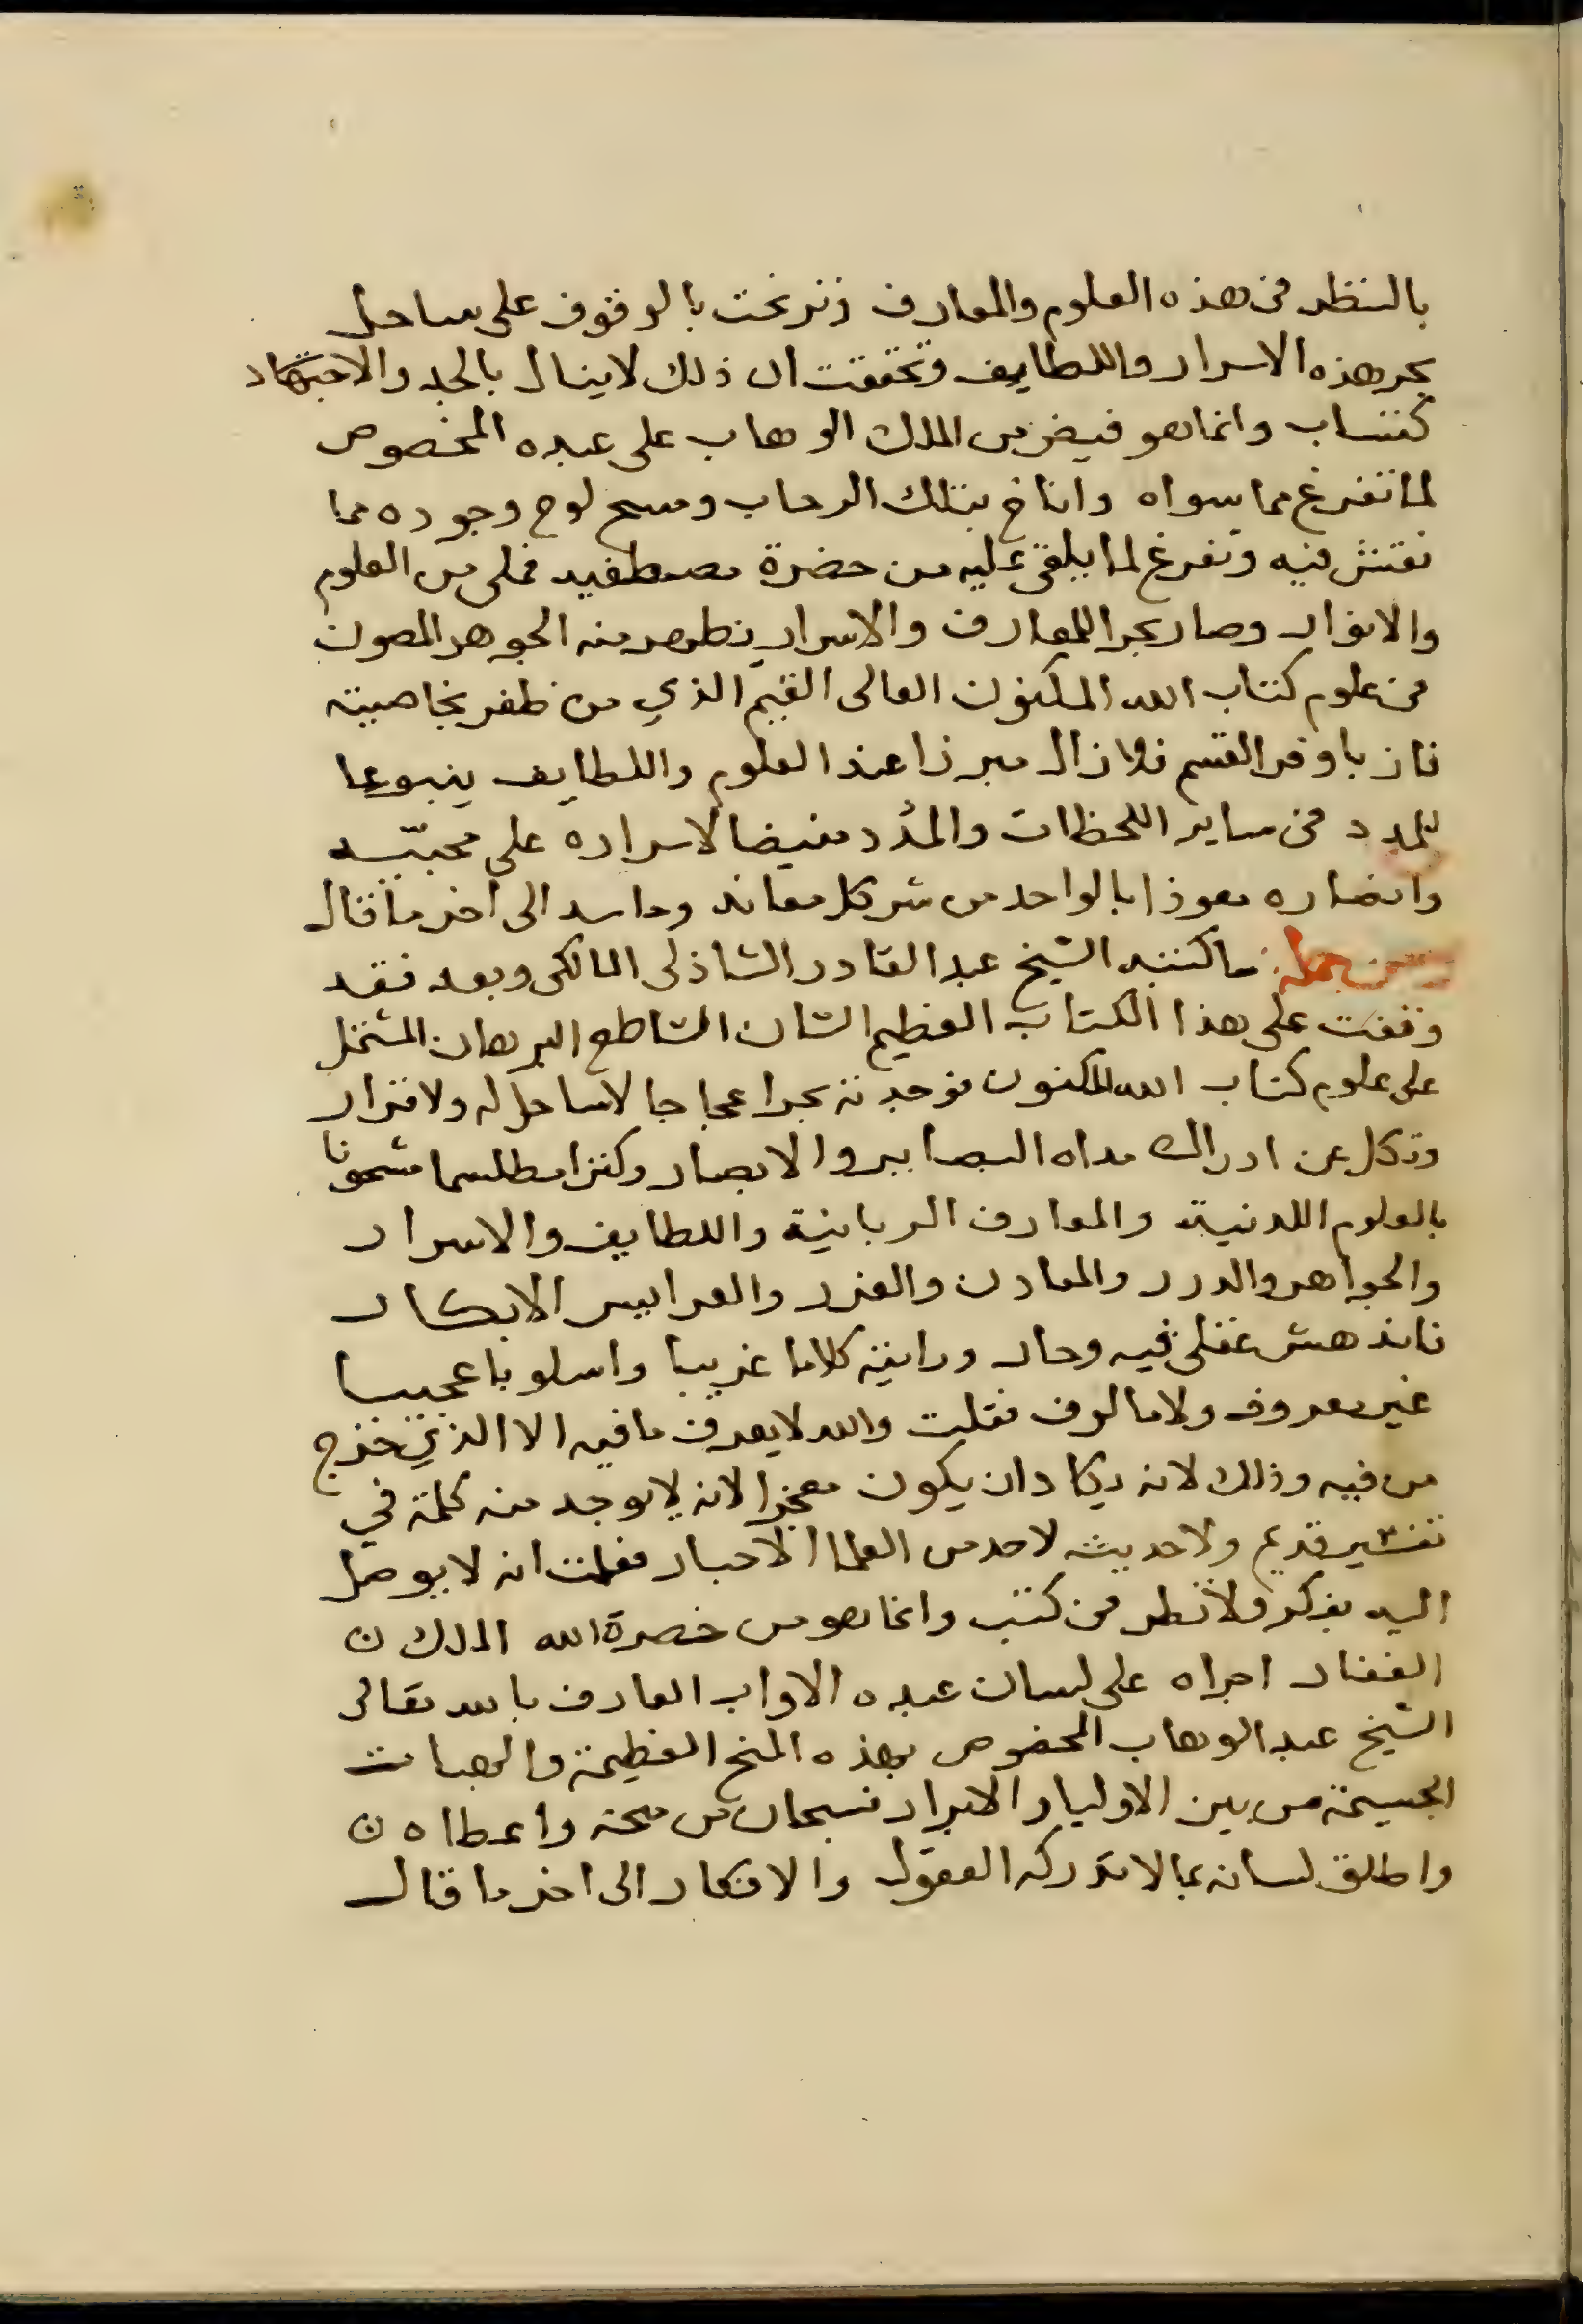 بالنظر في هذه العلوم والمعارف وترنحت بالوقوف على ساحل
بحر هذه الاسرار واللطايف وتحققت ان ذلك لاينال بالجد والاجتهاد
كتساب وانما هو فيض من الملك الوهاب على عبده المخصوص
لما تفرغ مما سواه واناخ بتلك الرحاب ومسح لوح وجوده مما
نقش فيه وتفرغ لما يلقى عليه من حضرة مصطفيه فملي من العلوم
والانوار وصار بحرا للمعارف والاسرار يظهر منه الجوهر المصون
من علوم كتاب الله المكنون العالى القيم الذي من ظفر بخاصيته
فاز باوفر القسم فلا زال مبرزا عند العلوم واللطايف ينبوعا
للمدد في ساير اللحظات والمدد مفيضا لاسراره على محبيه
وانصاره معوذا بالواحد من شر كل معاند وحاسد الى اخر ما قال
ومن جملة ما كتبه الشيخ عبد القادر الشاذلى المالكى وبعد فقد
وقفت على هذا الكتاب العظيم الشان الساطع البرهان المشتمل
على علوم كتاب الله المكنون فوجدته بحرا عجاجا لا ساحل له ولا قرار
وتكل عن ادراك مداه البصاير والابصار وكنزا مطلسما مشحونا
بالعلوم اللدنية والمعارف الربانية واللطايف والاسرار
والجواهر والدرر والمعادن والغرر والعرايس الابكار
فاندهش عقلي فيه وحار ورايته كلاما غريبا واسلوبا عجيبا
غير معروف ولا مالوف فقلت والله لايعرف ما فيه الا الذي خرج
من فيه وذلك لانه يكاد ان يكون معجزا لانه لايوجد منه كلمة في
تفسير قديم ولا حديث لاحد من العلما الاحبار فعلمت انه لايوصل
اليه بفكر ولا نظر في كتب وانما هو من حضرة الله الملك
الغفار اجراه على لسان عبده الاواب العارف بالله تعالى
الشيخ عبد الوهاب المخصوص بهذه المنح العظيمة والهبات
الجسيمة من بين الاوليا والابرار فسبحان من منحه واعطاه
واطلق لسانه بما لا تدركه العقول والافكار الى اخر ما قال